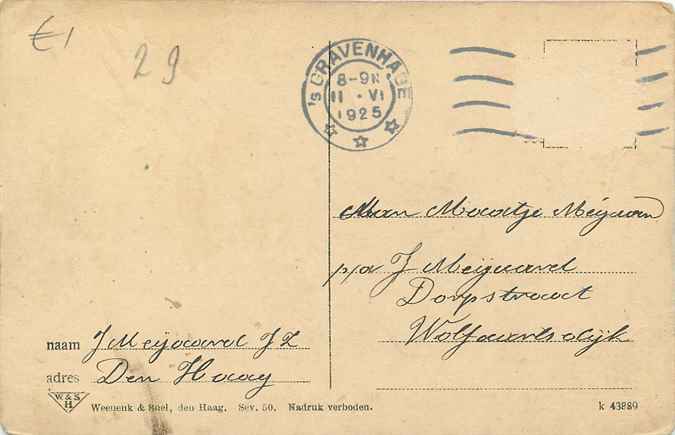 €1
29
's GRAVENHAGE
8-9N
11 · VI
1925
Aan Maatje Meijaard
p/a J Meijaard
Dorpstraat
Wolfaartsdijk
naam J Meijaard JZ
adres Den Haag
W&S
H
Weenenk & Snel, den Haag. Sev. 50. Nadruk verboden.
k 43889